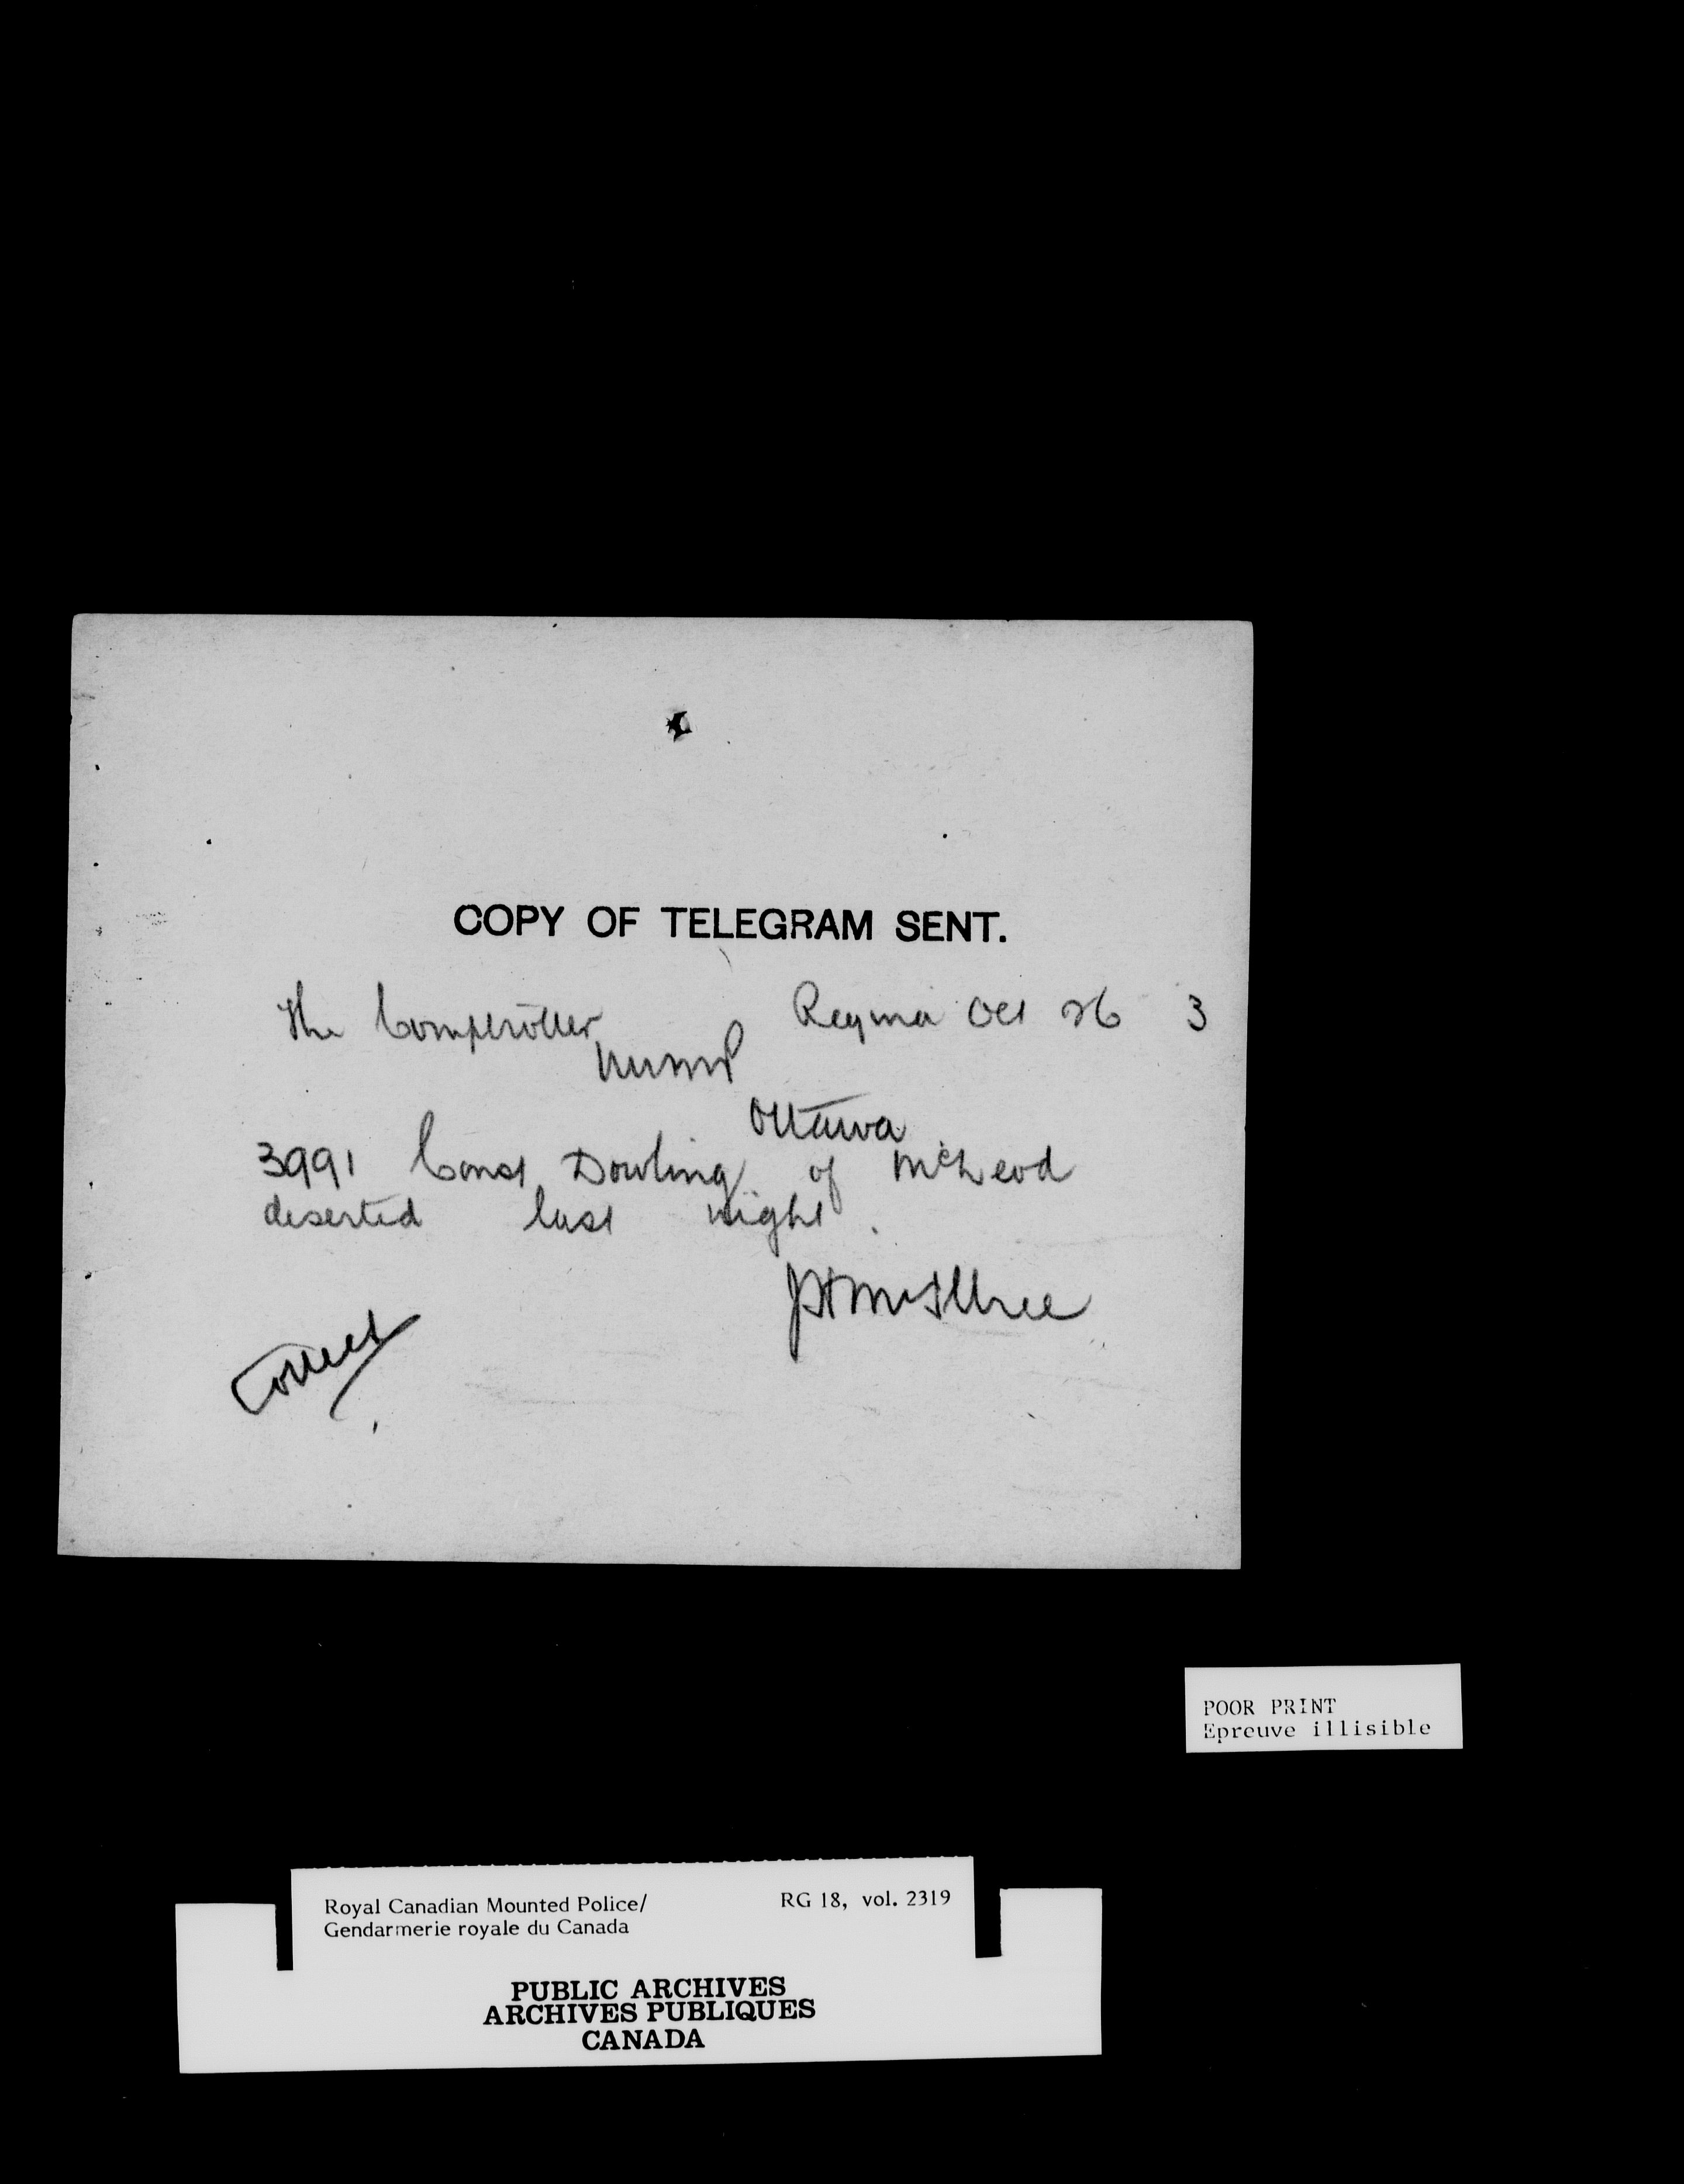 COPY OF TELEGRAM SENT.
The Comptroller Regina Oct 26 3
NWMP
Ottawa
3991 Const Dowling of McLeod
deserted last night.
JH McIllree
Correct
POOR PRINT
Epreuve illisible
Royal Canadian Mounted Police/ RG 18, vol. 2319
Gendarmerie royale du Canada
PUBLIC ARCHIVES
ARCHIVES PUBLIQUES
CANADA